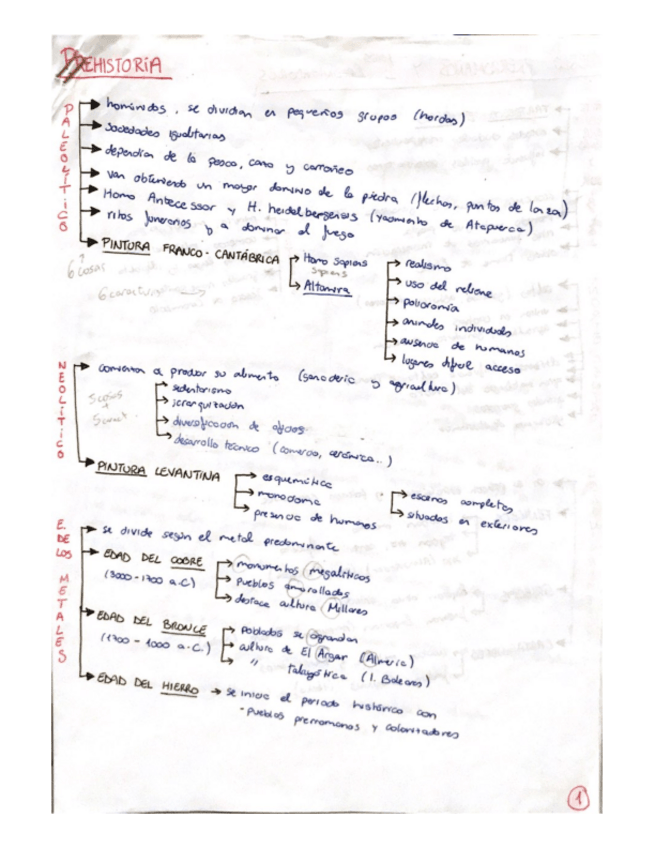 PREHISTORIA
PALEOLÍTICO
homínidos, se dividían en pequeños grupos (hordas)
sociedades igualitarias
dependían de la pesca, caza y carroñeo
van obteniendo un mayor dominio de la piedra (flechas, puntas de lanza)
Homo Antecessor y H. heidelbergensis (yacimiento de Atapuerca)
ritos funerarios y a dominar el fuego
PINTURA FRANCO-CANTÁBRICA
Homo sapiens
sapiens
Altamira
realismo
uso del relieve
policromía
animales individuales
ausencia de humanos
lugares difícil acceso
?
6 cosas
6 caract
NEOLÍTICO
comienzan a producir su alimento (ganadería y agricultura)
sedentarismo
jerarquización
diversificación de oficios
desarrollo técnico (comercio, cerámica..)
PINTURA LEVANTINA
esquemática
monocroma
presencia de humanos
escenas completas
situados en exteriores
E. DE LOS METALES
se divide según el metal predominante
EDAD DEL COBRE
(3000-1700 a.C)
monumentos megalíticos
pueblos amurallados
destaca cultura Millares
EDAD DEL BRONCE
(1700 - 1000 a.C.)
poblados se agrandan
cultura de El Argar (Almería)
" talayótica (I. Baleares)
EDAD DEL HIERRO → se inicia el periodo histórico con
- pueblos prerromanos y colonizadores
1